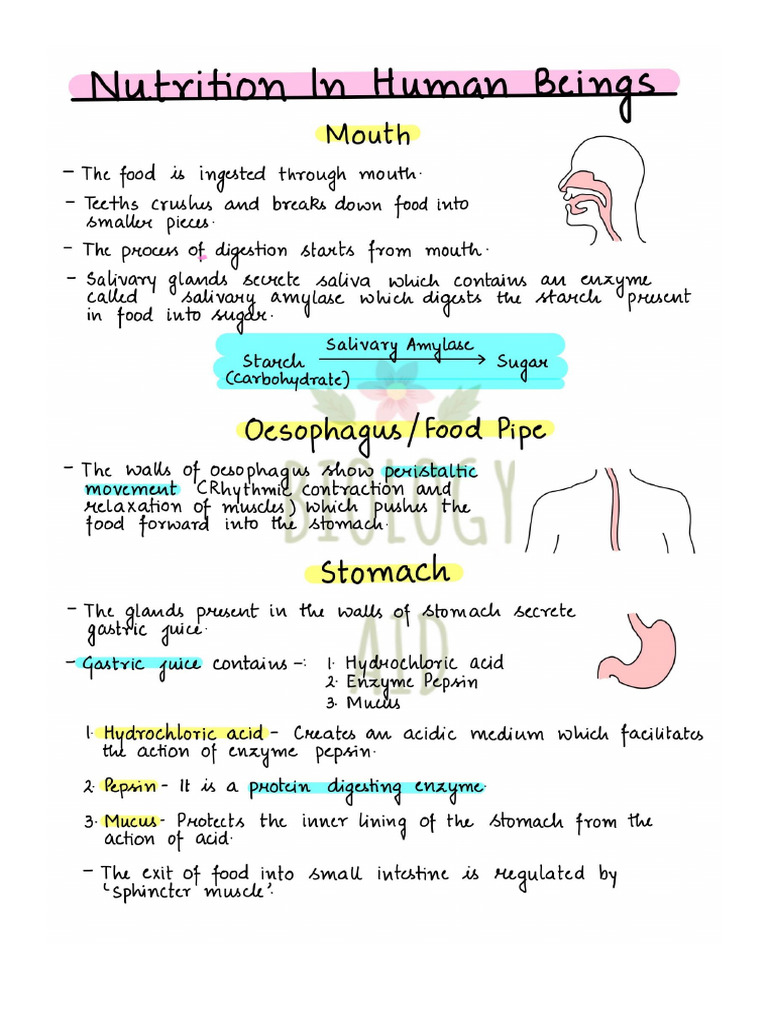 Nutrition In Human Beings
Mouth
- The food is ingested through mouth.
- Teeths crushes and breaks down food into
smaller pieces.
- The process of digestion starts from mouth.
- Salivary glands secrete saliva which contains an enzyme
called salivary amylase which digests the starch present
in food into sugar.
Salivary Amylase
Starch ⟶ Sugar
(Carbohydrate)
Oesophagus/Food Pipe
- The walls of oesophagus show peristaltic
movement (Rhythmic contraction and
relaxation of muscles) which pushes the
food forward into the stomach.
BIOLOGY
Stomach
- The glands present in the walls of stomach secrete
gastric juice.
AID
- Gastric juice contains -: 1. Hydrochloric acid
2. Enzyme Pepsin
3. Mucus
1. Hydrochloric acid - Creates an acidic medium which facilitates
the action of enzyme pepsin.
2. Pepsin - It is a protein digesting enzyme.
3. Mucus - Protects the inner lining of the stomach from the
action of acid.
- The exit of food into small intestine is regulated by
'sphincter muscle'.